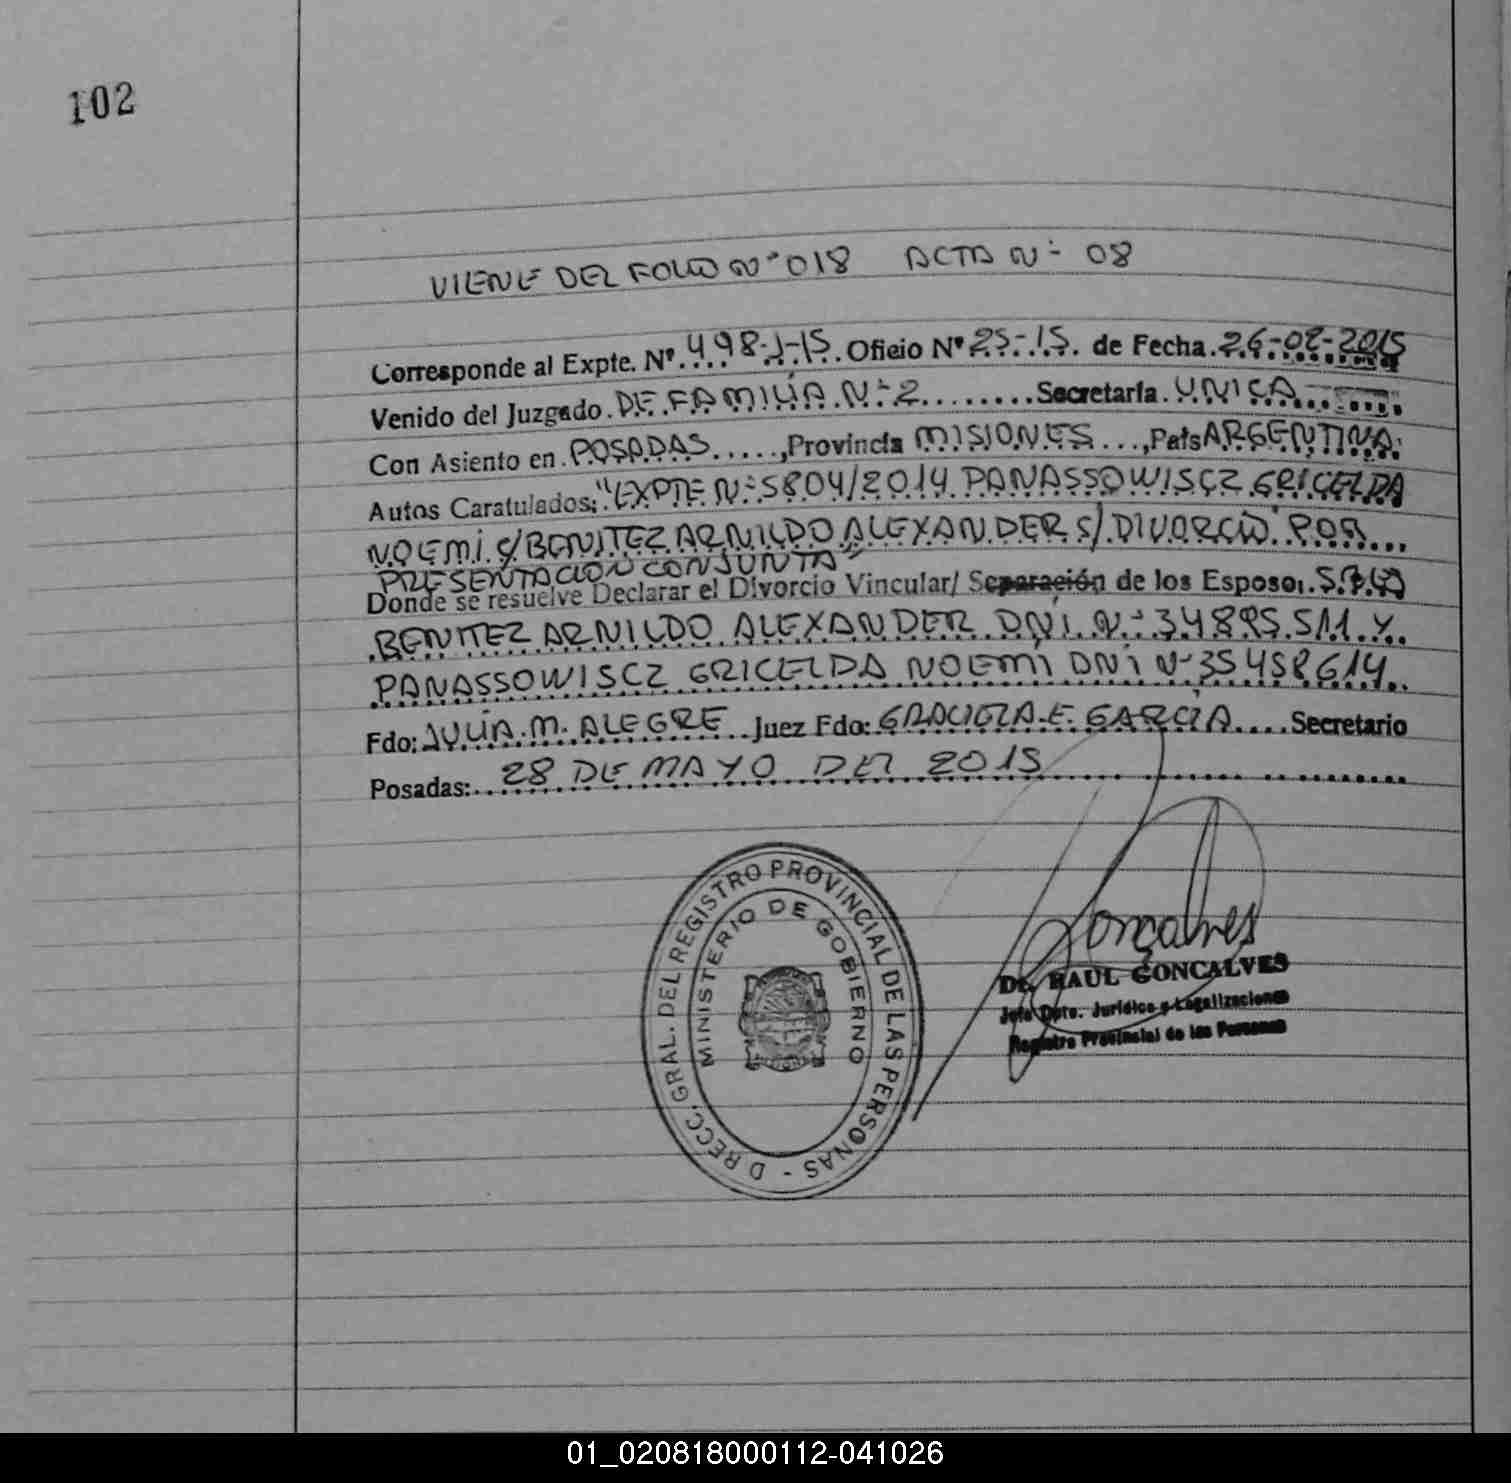 102
VIENE DEL FOLIO Nº 018 ACTA Nº 08
Corresponde al Expte. Nº 498-J-15 Oficio Nº 25-15 de Fecha 26-02-2015
Venido del Juzgado DE FAMILIA Nº 2 Secretaría UNICA
Con Asiento en POSADAS, Provincia MISIONES, País ARGENTINA
Autos Caratulados: "EXPTE Nº 5804/2014 PANASSOWISCZ GRICELDA
NOEMI c/ BENITEZ ARNILDO ALEXANDER S/ DIVORCIO POR
PRESENTACION CONJUNTA"
Donde se resuelve Declarar el Divorcio Vincular/ Separación de los Esposos
BENITEZ ARNILDO ALEXANDER DNI Nº 34895511 Y
PANASSOWISCZ GRICELDA NOEMI DNI Nº 35458614
Fdo: JULIA M. ALEGRE Juez Fdo: GRACIELA E. GARCIA Secretario
Posadas: 28 DE MAYO DEL 2015
DIRECC. GRAL. DEL REGISTRO PROVINCIAL DE LAS PERSONAS -
MINISTERIO DE GOBIERNO
Goncalves
Dr. RAUL GONCALVES
Jefe Dpto. Jurídico y Legalizaciones
Registro Provincial de las Personas
01_020818000112-041026